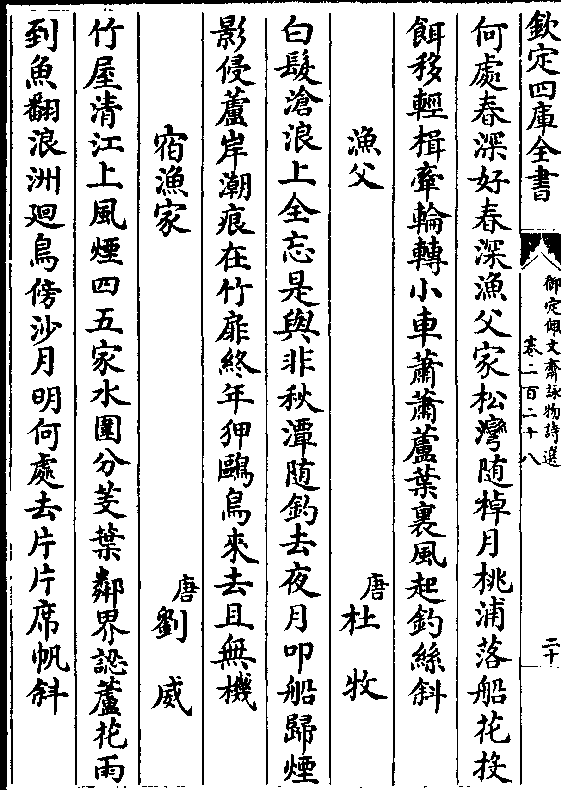 欽定四庫全書
御定佩文齋詠物詩選
卷二百二十八
二十
何處春深好春深漁父家松灣随棹月桃浦落船花投
餌移輕楫牽輪轉小車蕭蕭蘆葉裏風起釣絲斜
漁父
唐杜牧
白髮滄浪上全忘是與非秋潭随釣去夜月叩船歸煙
影侵蘆岸潮痕在竹扉終年狎鷗鳥來去且無機
宿漁家
唐劉威
竹屋清江上風煙四五家水園分芰葉鄰界認蘆花雨
到魚翻浪洲迴鳥傍沙月明何處去片片席帆斜